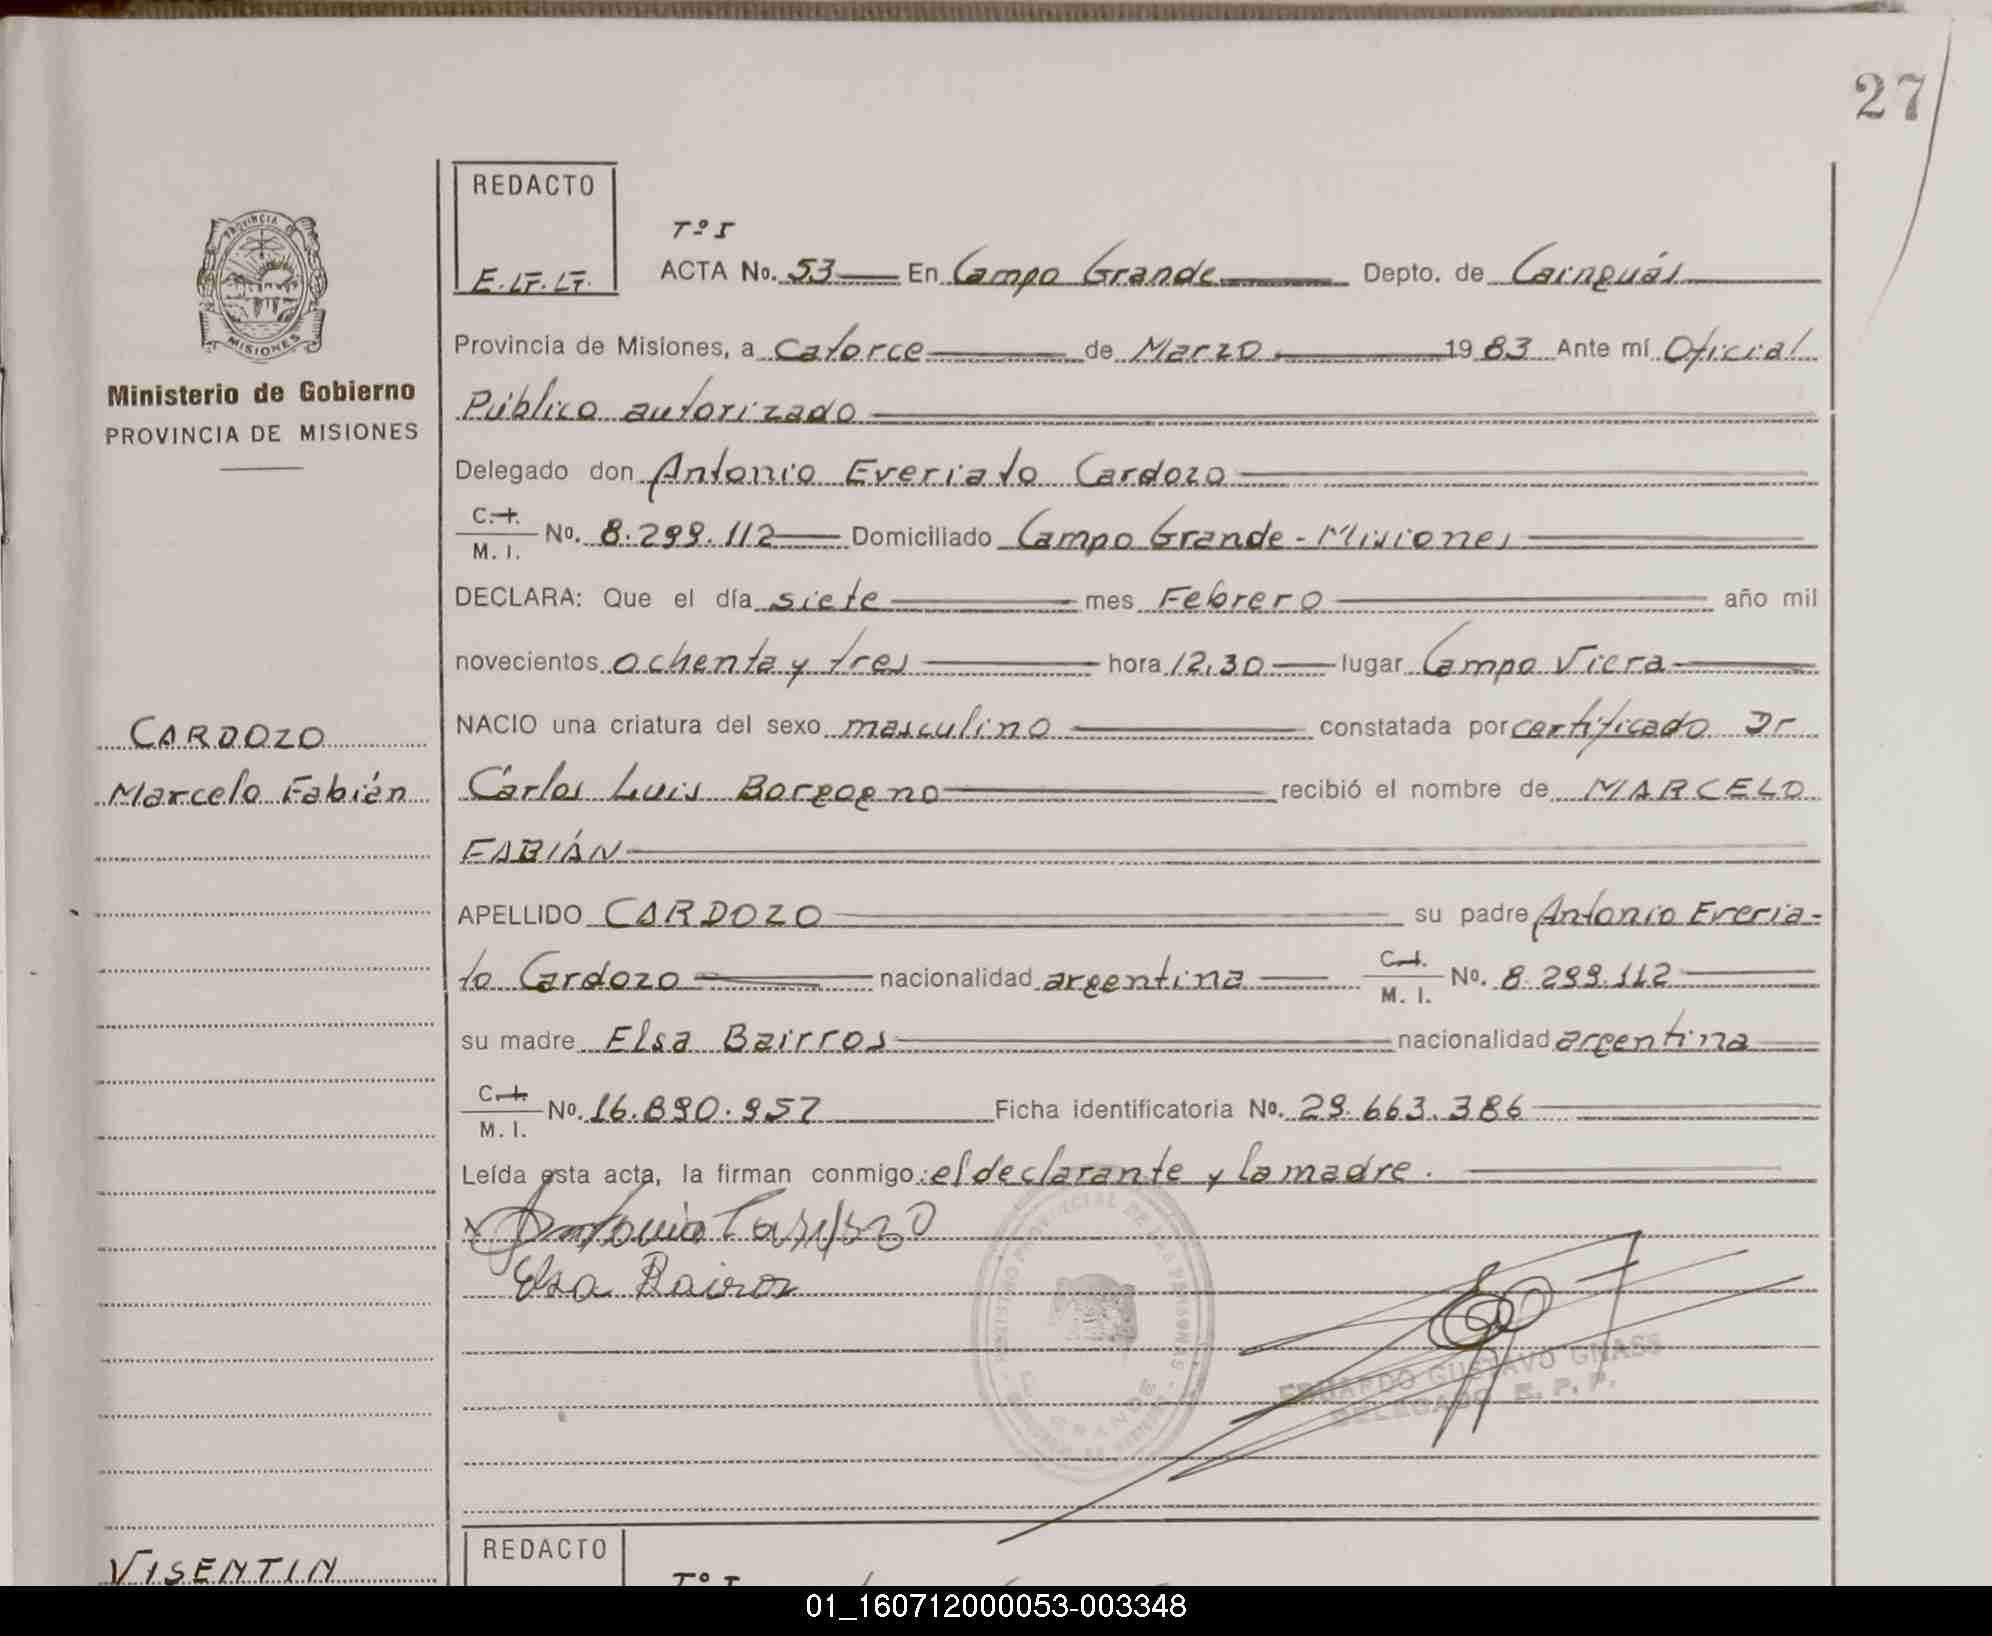 27
REDACTO
E.G.G.
Tº I
ACTA No. 53 En Campo Grande Depto. de Cainguás
PROVINCIA
MISIONES
Provincia de Misiones, a catorce de Marzo 1983 Ante mí Oficial
Ministerio de Gobierno
PROVINCIA DE MISIONES
Público autorizado
Delegado don Antonio Everiato Cardozo
C. I.
M. I. No. 8.299.112 Domiciliado Campo Grande - Misiones
DECLARA: Que el día siete mes Febrero año mil
novecientos ochenta y tres hora 12,30 lugar Campo Viera
CARDOZO
Marcelo Fabián
NACIO una criatura del sexo masculino constatada por certificado Dr
Carlos Luis Borgogno recibió el nombre de MARCELO
FABIÁN
APELLIDO CARDOZO su padre Antonio Everia-
to Cardozo nacionalidad argentina C. I. M. I. No. 8.299.112
su madre Elsa Bairros nacionalidad argentina
C. I.
M. I. No. 16.890.957 Ficha identificatoria No. 29.663.386
Leída esta acta, la firman conmigo: el declarante y la madre.
Antonio Cardozo
Elsa Bairros
REGISTRO PROVINCIAL DE LAS PERSONAS
GRANDE
EDUARDO GUSTAVO GNASS
DELEGADO R. P. P.
VISENTIN
REDACTO
Tº I
01_160712000053-003348